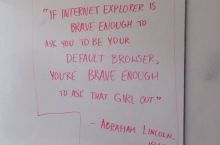 "IF INTERNET EXPLORER IS
BRAVE ENOUGH TO
ASK YOU TO BE YOUR
DEFAULT BROWSER,
YOU'RE BRAVE ENOUGH
TO ASK THAT GIRL OUT."
- ABRAHAM LINCOLN,